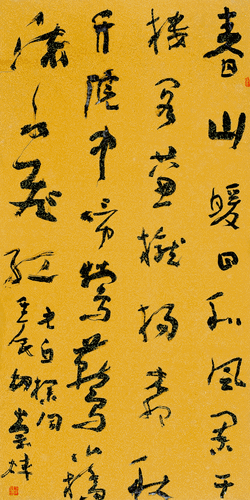 春山暖日和風闌干
樓閣簾櫳楊柳秋
千院中啼鶯舞燕小橋
流水飛紅